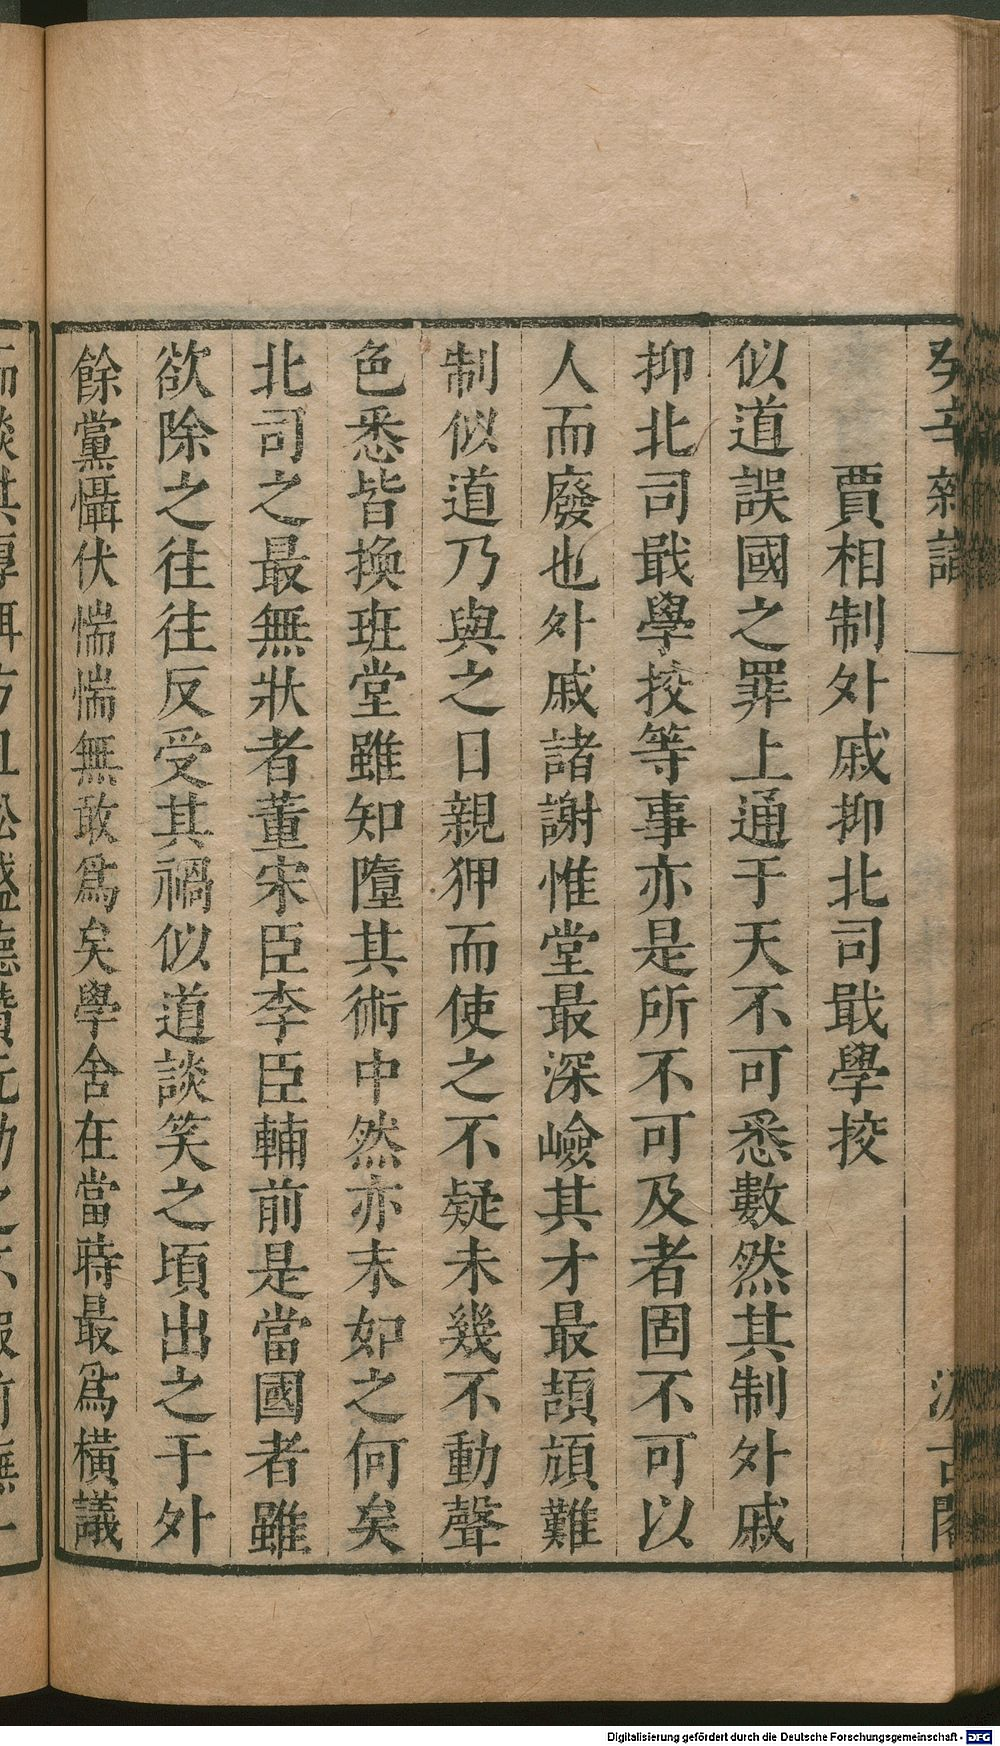 癸辛雜識
汲古閣
賈相制外戚抑北司戢學挍
似道誤國之罪上通于天不可悉數然其制外戚
抑北司戢學挍等事亦是所不可及者固不可以
人而廢也外戚諸謝惟堂最深嶮其才最頡頏難
制似道乃與之日親狎而使之不疑未幾不動聲
色悉皆換班堂雖知墮其術中然亦末如之何矣
北司之最無狀者董宋臣李臣輔前是當國者雖
欲除之往往反受其禍似道談笑之頃出之于外
餘黨懾伏惴惴無敢爲矣學舍在當時最爲橫議
Digitalisierung gefördert durch die Deutsche Forschungsgemeinschaft - DFG